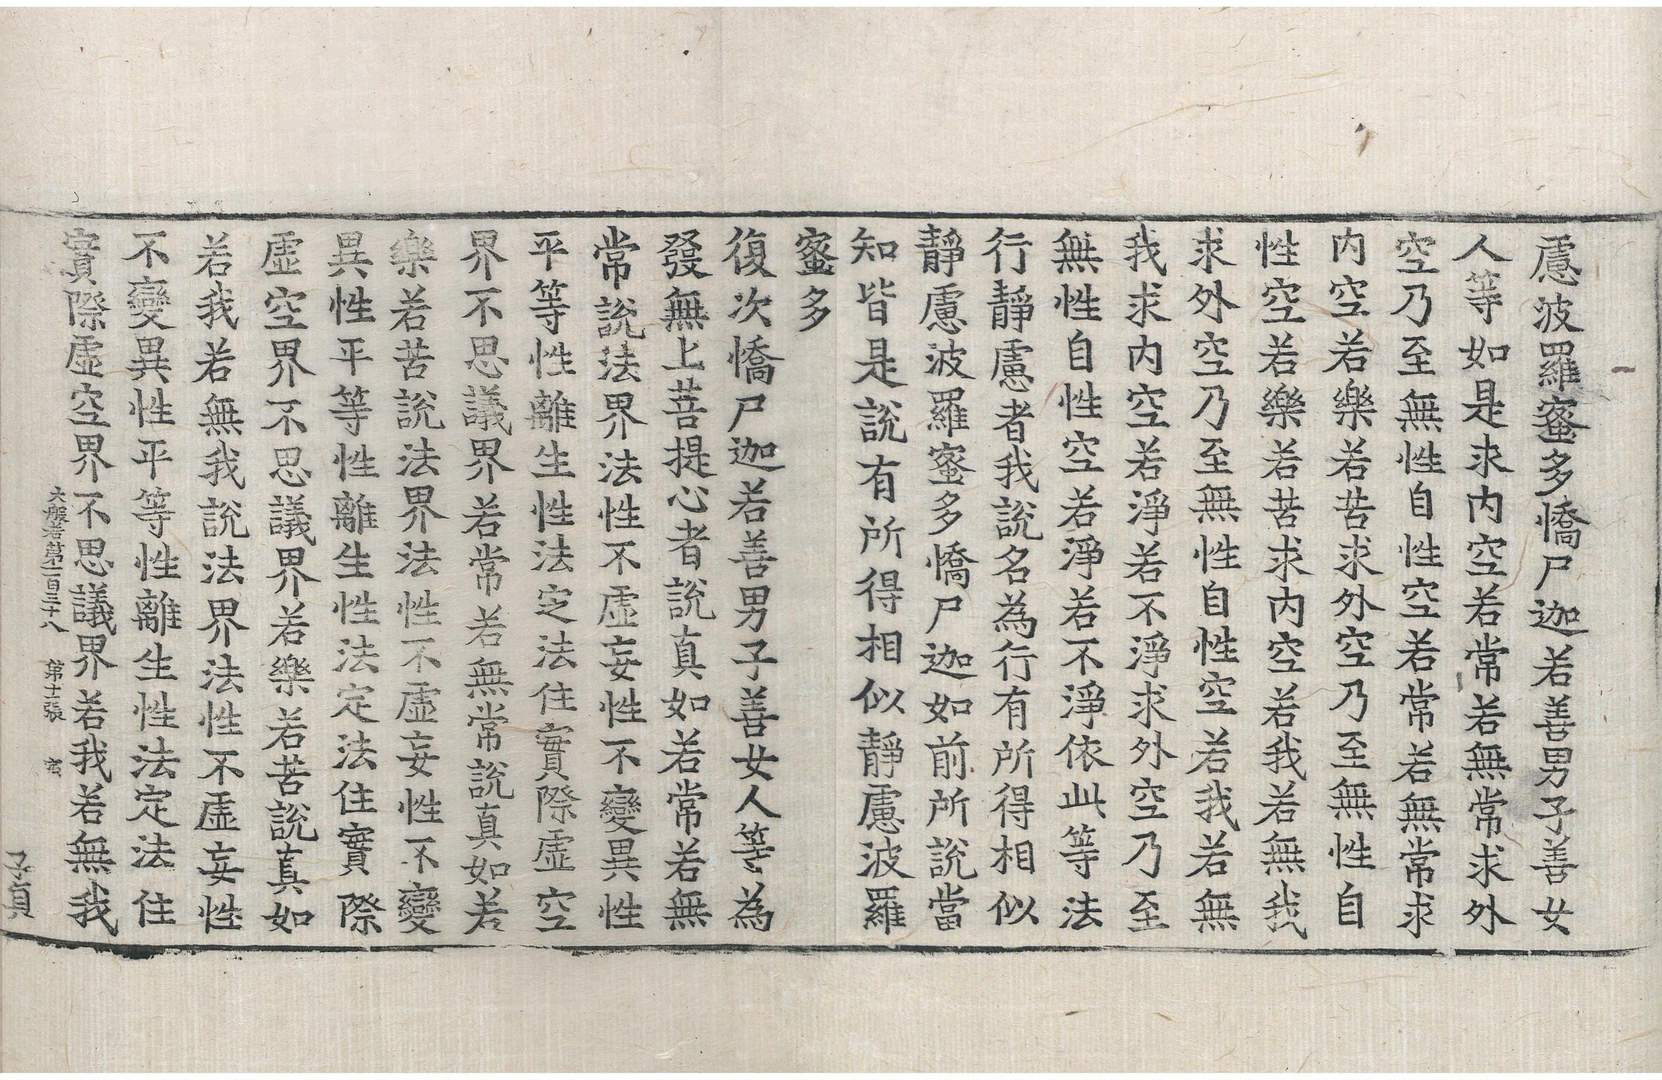 慮波羅蜜多憍尸迦若善男子善女
人等如是求內空若常若無常求外
空乃至無性自性空若常若無常求
內空若樂若苦求外空乃至無性自
性空若樂若苦求內空若我若無我
求外空乃至無性自性空若我若無
我求內空若淨若不淨求外空乃至
無性自性空若淨若不淨依此等法
行靜慮者我說名為行有所得相似
靜慮波羅蜜多憍尸迦如前所說當
知皆是說有所得相似靜慮波羅
蜜多
復次憍尸迦若善男子善女人等為
發無上菩提心者說真如若常若無
常說法界法性不虛妄性不變異性
平等性離生性法定法住實際虛空
界不思議界若常若無常說真如若
樂若苦說法界法性不虛妄性不變
異性平等性離生性法定法住實際
虛空界不思議界若樂若苦說真如
若我若無我說法界法性不虛妄性
不變異性平等性離生性法定法住
實際虛空界不思議界若我若無我
大般若第一百三十八 第十二張
子貞